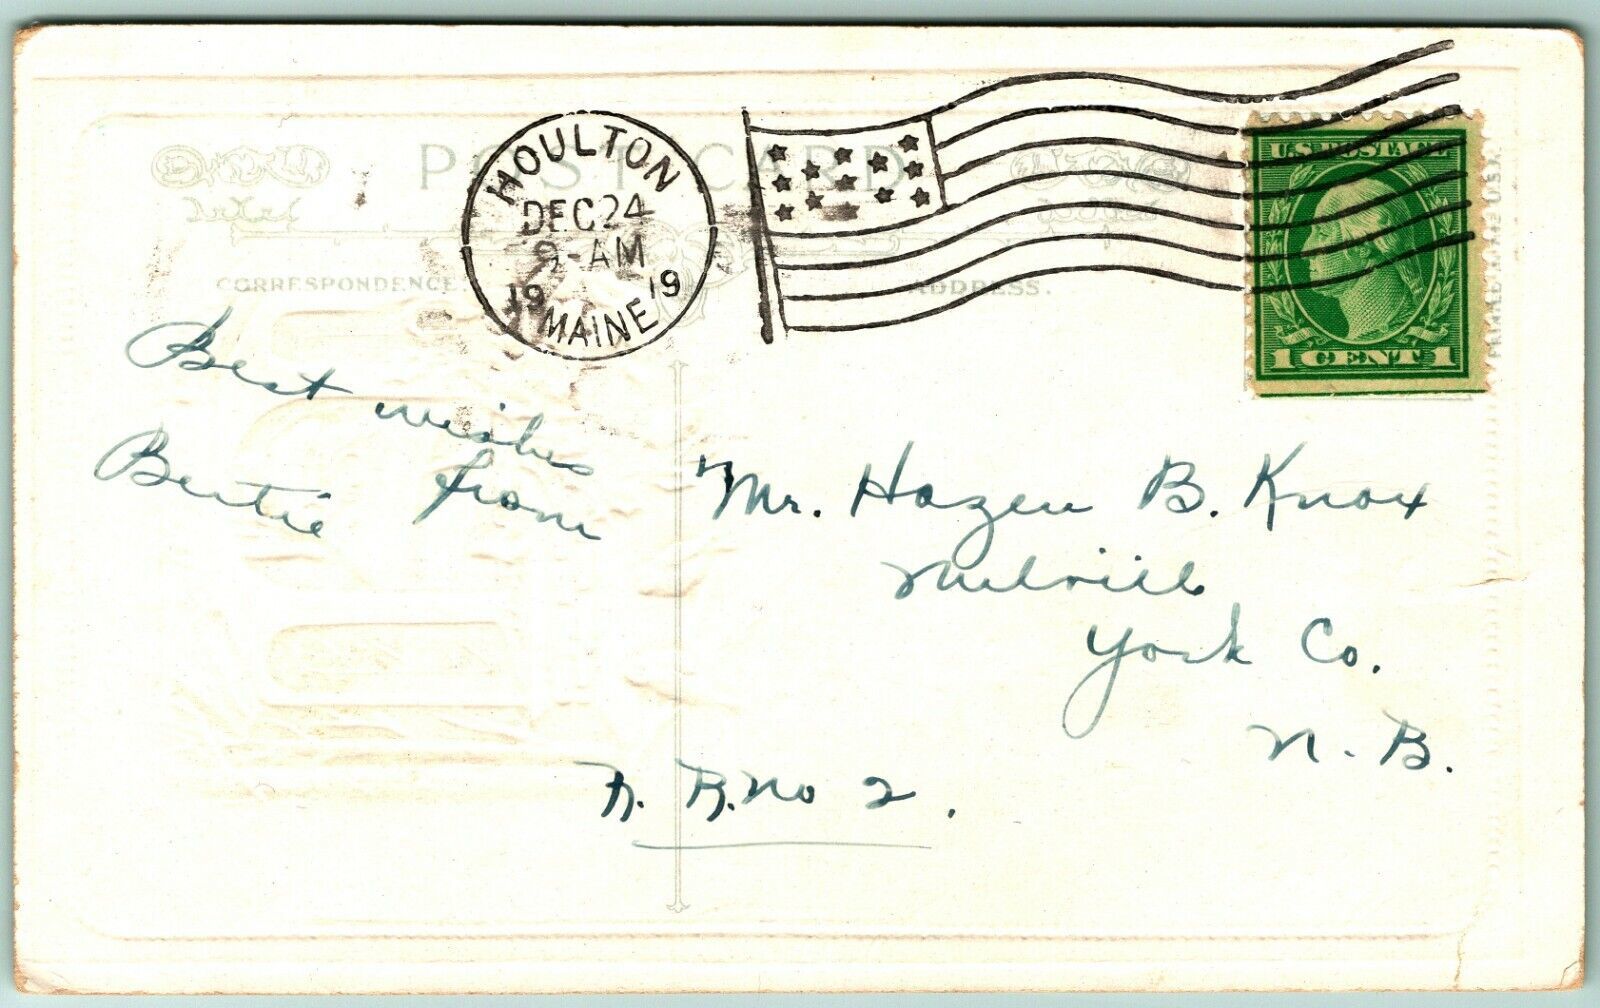 POST CARD
HOULTON
DEC 24
9-AM
19 19
MAINE
U.S. POSTAGE
1 CENT 1
CORRESPONDENCE.
ADDRESS.
Best wishes
from
Bertie
Mr. Hazen B. Knox
Melville
York Co.
N. B.
R. R. No 2.